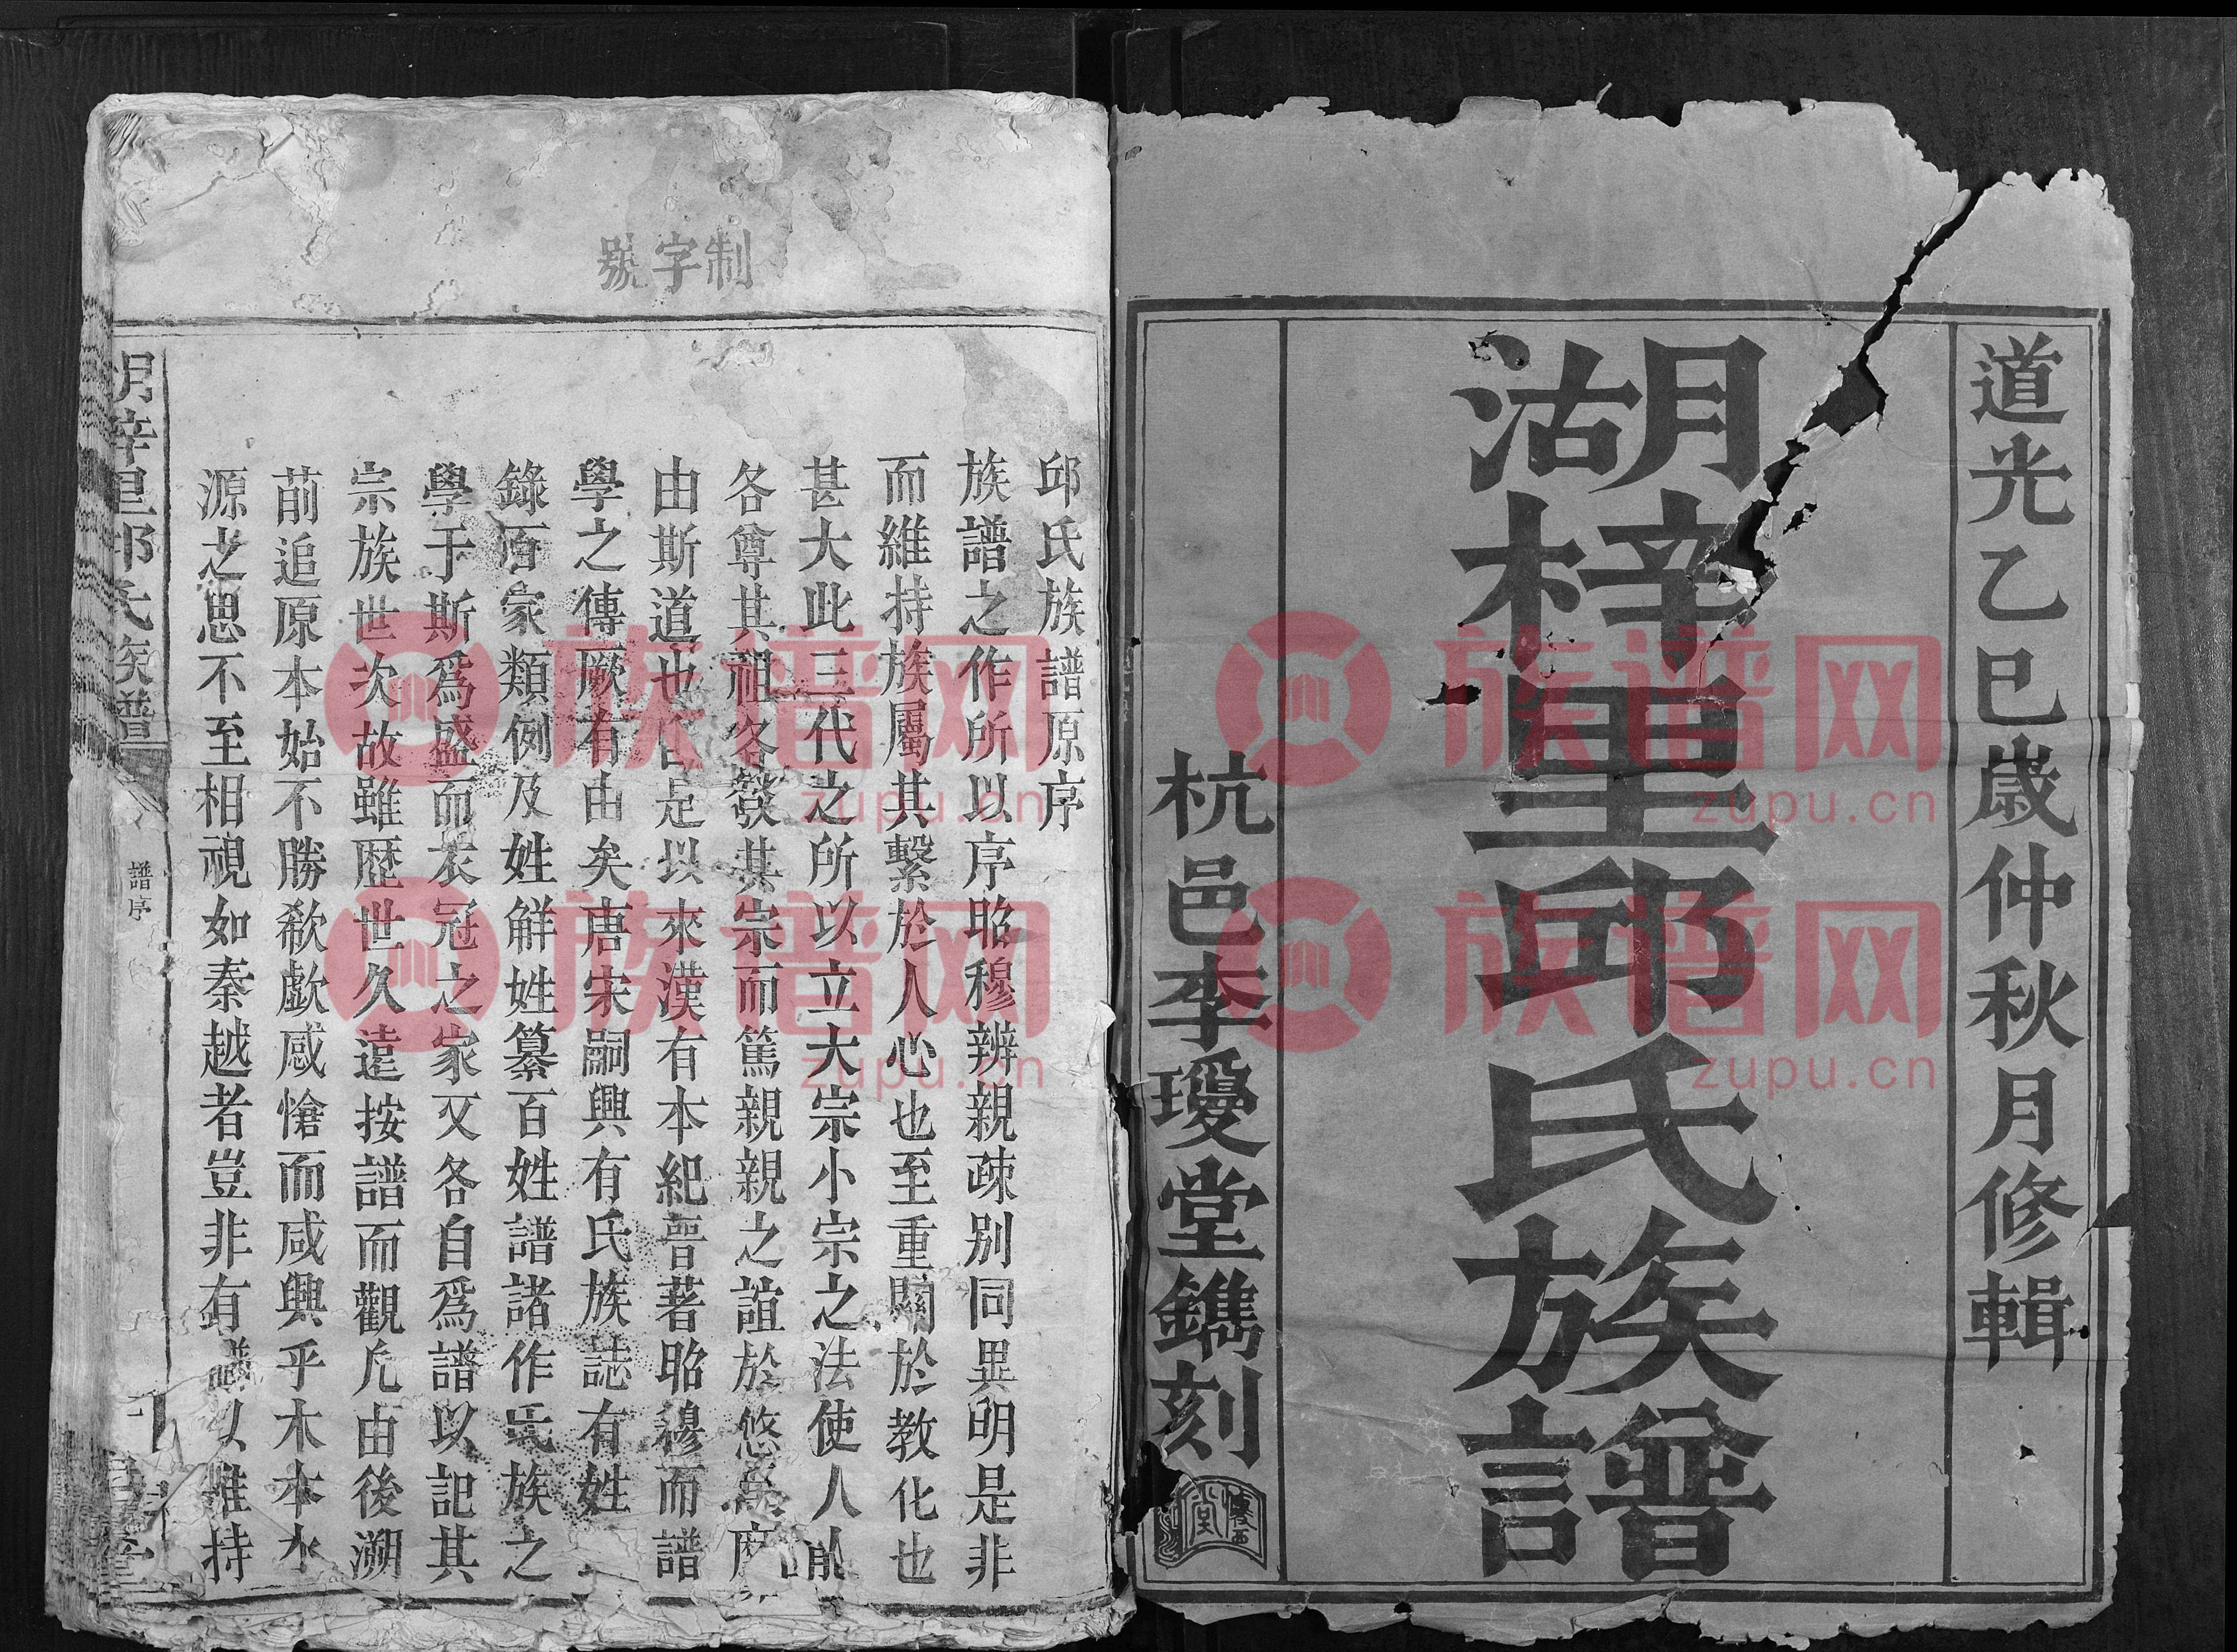 道光乙巳歲仲秋月修輯
湖梓里邱氏族譜
杭邑李璦堂鐫刻
制字號
邱氏族譜原序
族譜之作所以序昭穆辨親疎別同異明是非
而維持族屬其繫於人心也至重關於教化也
甚大此三代之所以立大宗小宗之法使人人
各尊其祖各發其宗而篤親親之誼於悠
由斯道也 是以來漢有本紀晉著昭穆而譜
學之傳厥有由矣唐宋嗣興有氏族誌有姓
錄百家類例及姓解姓纂百姓譜諸作氏族之
學于斯爲盛而衣冠之家又各自爲譜以記其
宗族世次故雖歴世久遠按譜而觀尤由後溯
前追原本始不勝欷歔感愴而咸興乎木本水
源之思不至相視如秦越者豈非有 以維持
湖梓里邱氏族譜
譜序
族谱网
zupu.cn
族谱网
zupu.cn
族谱网
zupu.cn
族谱网
zupu.cn